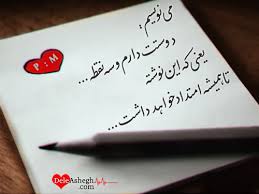 می نویسم :
دوستت دارم و سه نقطه...
یعنی که این نوشته
تا همیشه امتداد خواهد داشت...
P : M
DeleAshegh
.com